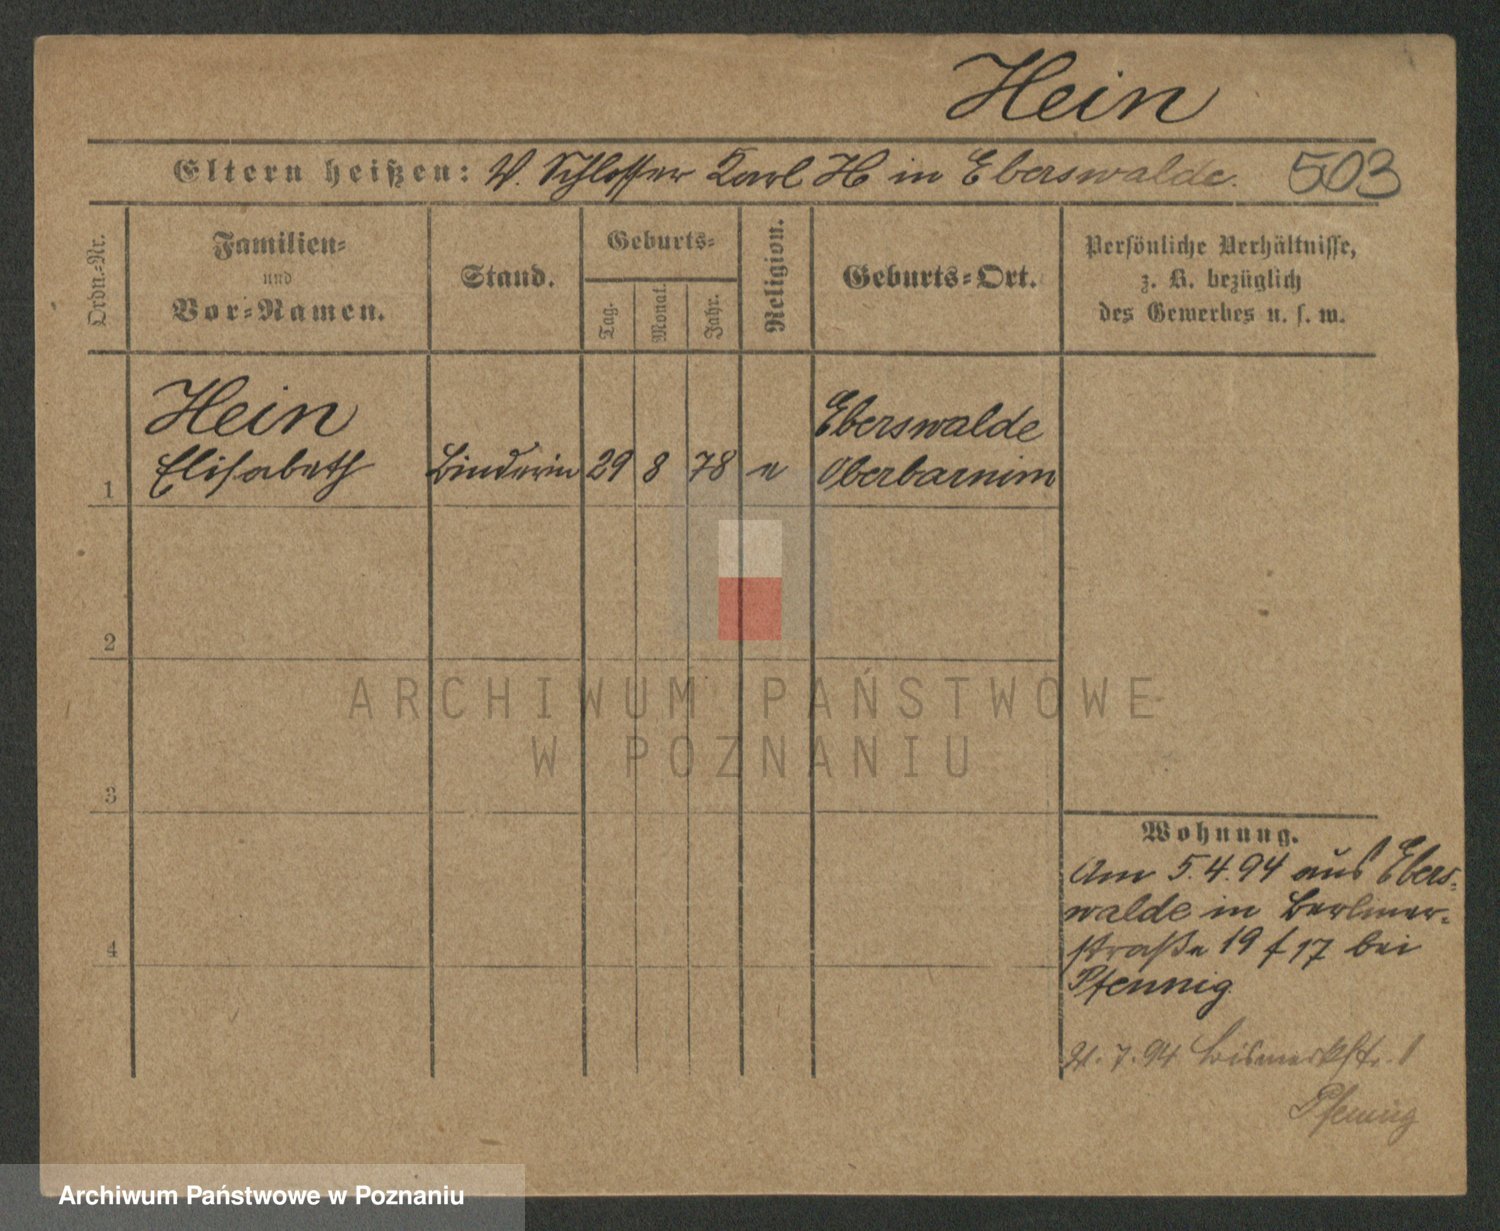 Hein
Eltern heißen: V. Schlosser Karl H in Eberswalde. 503
Ordn.-Nr.
Familien-
und
Vor-Namen.
Stand.
Geburts-
Tag.
Monat.
Jahr.
Religion.
Geburts-Ort.
Persönliche Verhältnisse,
z. B. bezüglich
des Gewerbes u. s. w.
Hein
Elisabeth
1
Binderin
29
8
78
e
Eberswalde
Oberbarnim
2
3
4
Wohnung.
Am 5.4.94 aus Ebers-
walde in Berliner-
straße 19 f 17 bei
Pfennig
7.94 Bismarkstr. 1
Pfennig
ARCHIWUM PAŃSTWOWE
W POZNANIU
Archiwum Państwowe w Poznaniu